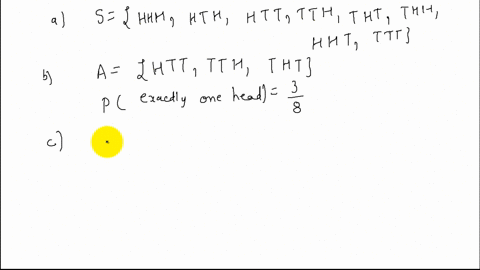 a) S = { HHH, HTH, HTT, TTH, THT, THH,
HHT, TTT}
b) A = { HTT, TTH, THT}
P( exactly one head) = 3/8
c)